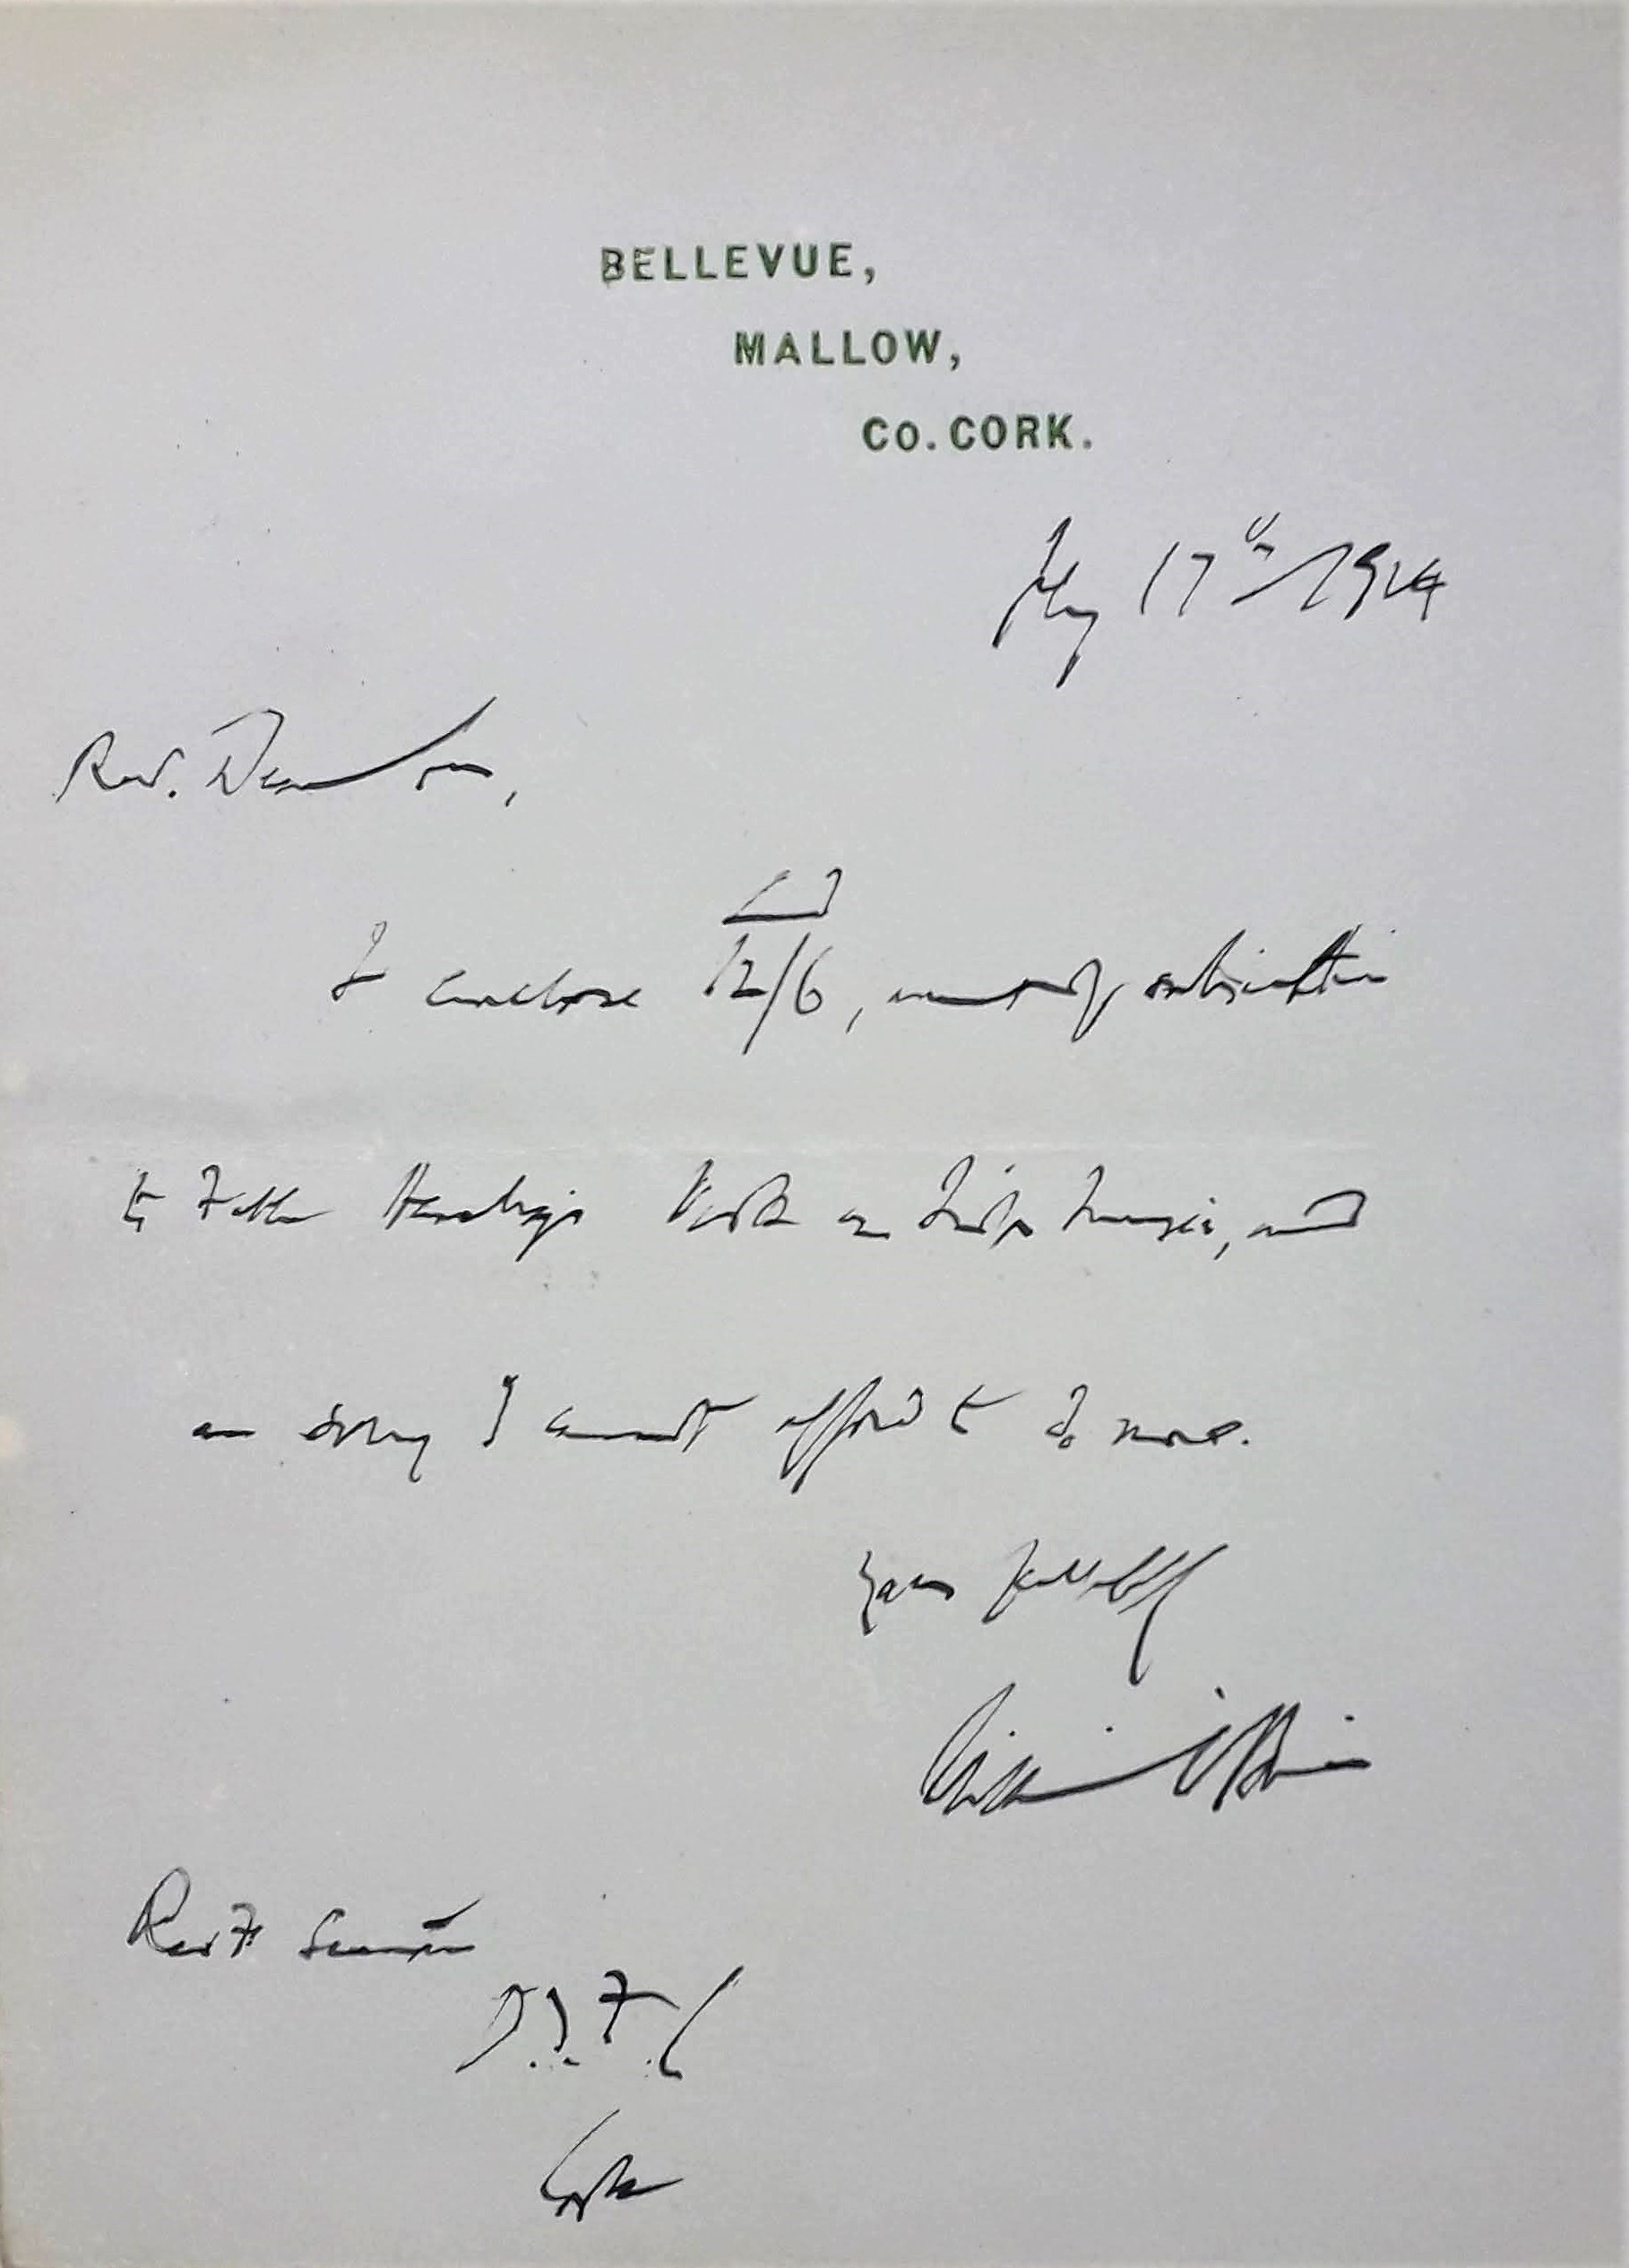 BELLEVUE,
MALLOW,
Co. CORK.
July 17th 1924
Rev. Dear Sir,
I enclose 12/6, amount of subscription
to Father Henebry's Work on Irish Music, and
am sorry I cannot afford to do more.
Yours faithfully
William O'Brien
Rev Fr
Cork